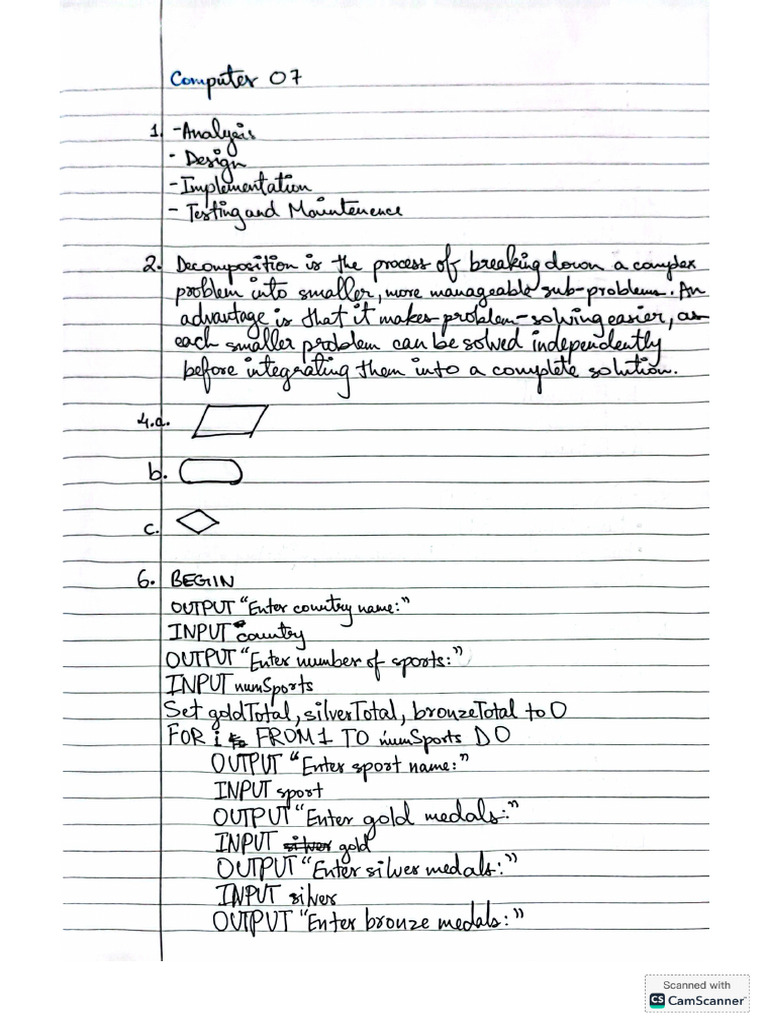 Computer 07
1. - Analysis
- Design
- Implementation
- Testing and Maintenence
2. Decomposition is the process of breaking down a complex
problem into smaller, more manageable sub-problems. An
advantage is that it makes problem-solving easier, as
each smaller problem can be solved independently
before integrating them into a complete solution.
4.a.
b.
c.
6. BEGIN
OUTPUT "Enter country name:"
INPUT country
OUTPUT "Enter number of sports:"
INPUT numSports
Set goldTotal, silverTotal, bronzeTotal to 0
FOR i FROM 1 TO numSports DO
OUTPUT "Enter sport name:"
INPUT sport
OUTPUT "Enter gold medals:"
INPUT silver gold
OUTPUT "Enter silver medals:"
INPUT silver
OUTPUT "Enter bronze medals:"
Scanned with
CS CamScanner